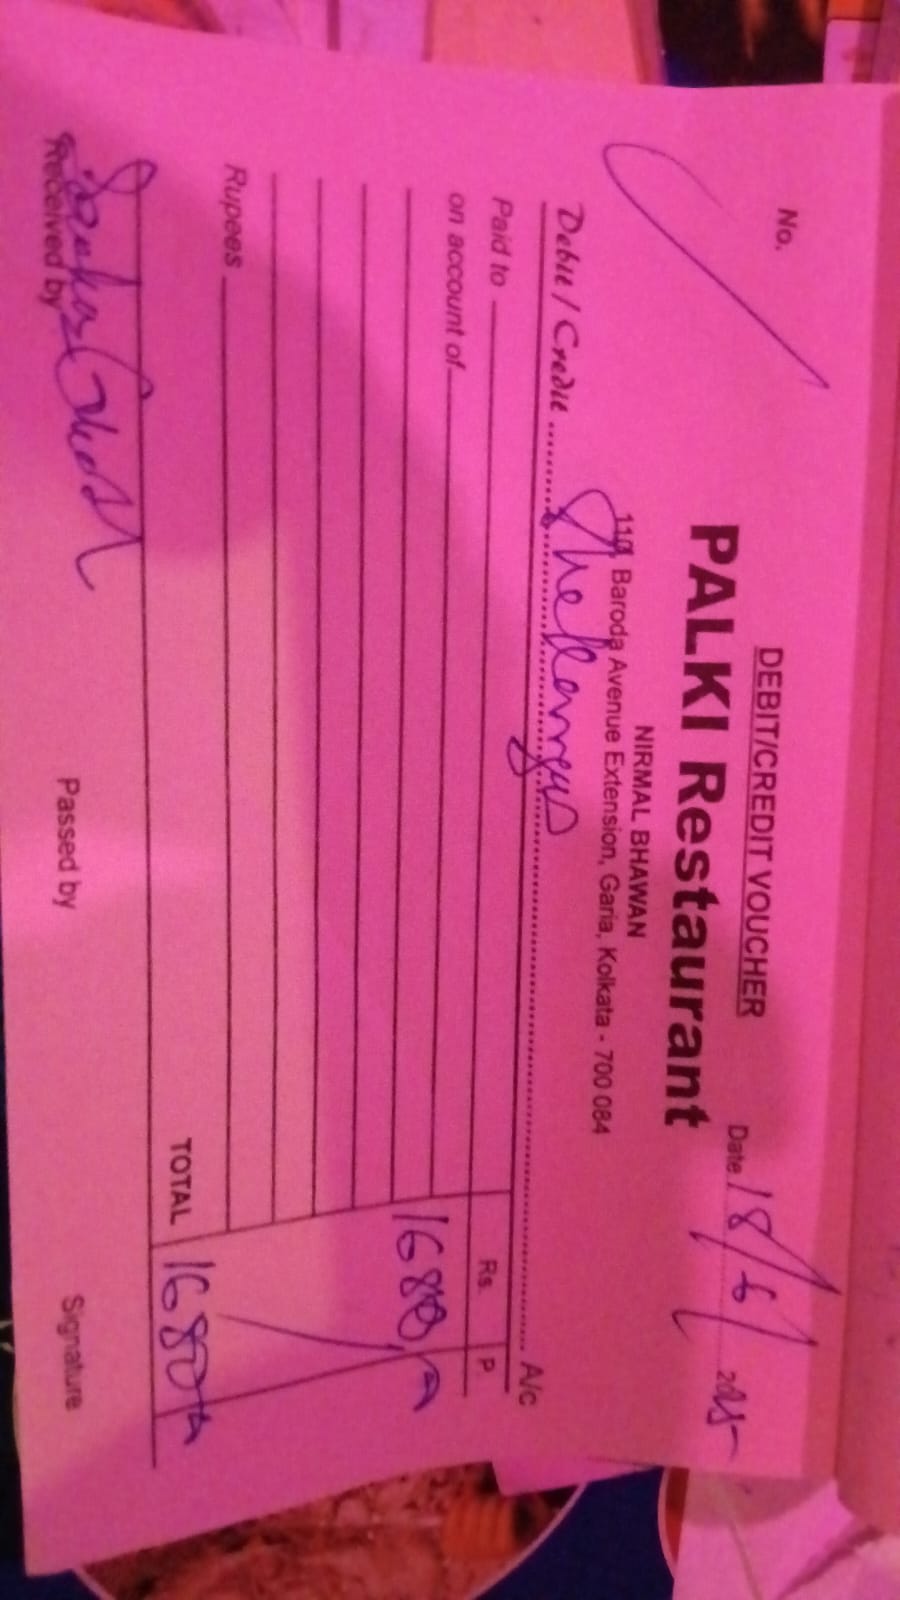 DEBIT/CREDIT VOUCHER
No.
Date 18/6/2025
PALKI Restaurant
NIRMAL BHAWAN
110, Baroda Avenue Extension, Garia, Kolkata - 700 084
Debit / Credit A/c
Paid to Rs. P
on account of
1680
Rupees
TOTAL 1680
Received by Passed by Signature